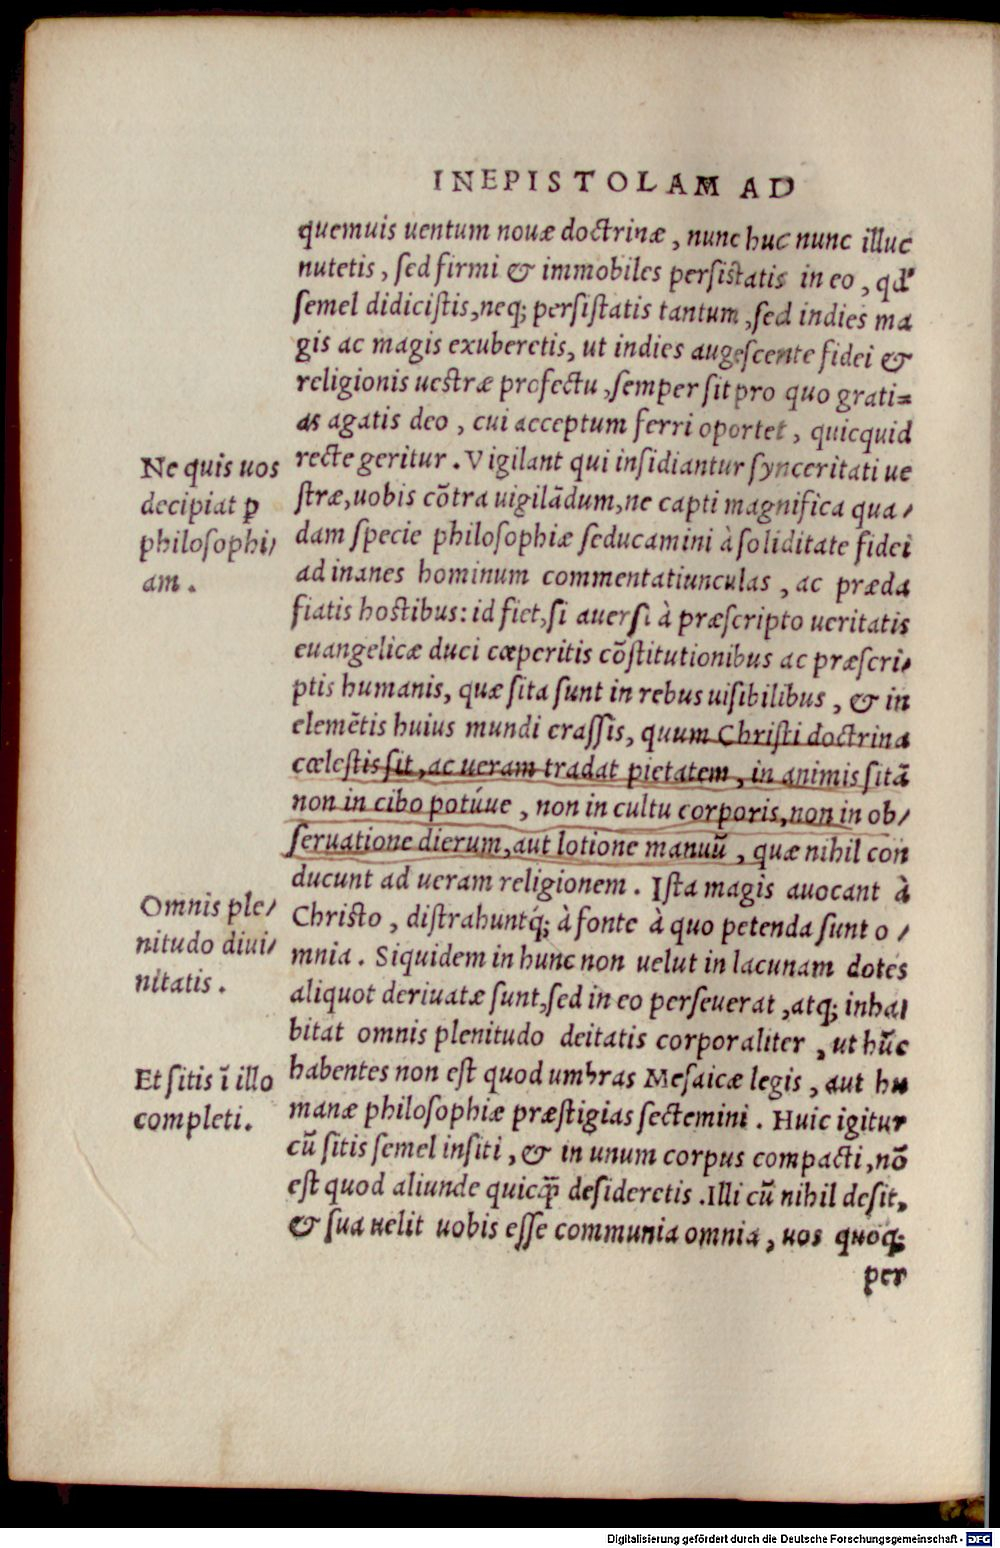 IN EPISTOLAM AD
quemuis uentum nouæ doctrinæ, nunc huc nunc illuc
nutetis, ſed firmi & immobiles perſiſtatis in eo, qđ
ſemel didiciſtis, neq; perſiſtatis tantum, ſed indies ma
gis ac magis exuberetis, ut indies augeſcente fidei &
religionis ueſtræ profectu, ſemper ſit pro quo grati=
as agatis deo, cui acceptum ferri oportet, quicquid
recte geritur. Vigilant qui inſidiantur ſynceritati ue
ſtræ, uobis cõtra uigilãdum, ne capti magnifica qua/
dam ſpecie philoſophiæ ſeducamini à ſoliditate fidei
ad inanes hominum commentatiunculas, ac præda
fiatis hoſtibus: id fiet, ſi auerſi à præſcripto ueritatis
euangelicæ duci cœperitis cõſtitutionibus ac præſcri/
ptis humanis, quæ ſita ſunt in rebus uiſibilibus, & in
elemẽtis huius mundi craſſis, quum Chriſti doctrina
cœleſtis ſit, ac ueram tradat pietatem, in animis ſitã
non in cibo potúue, non in cultu corporis, non in ob/
ſeruatione dierum, aut lotione manuũ, quæ nihil con
ducunt ad ueram religionem. Iſta magis auocant à
Chriſto, diſtrahuntq́; à fonte à quo petenda ſunt o/
mnia. Siquidem in hunc non uelut in lacunam dotes
aliquot deriuatæ ſunt, ſed in eo perſeuerat, atq; inhal
bitat omnis plenitudo deitatis corporaliter, ut hũc
habentes non eſt quod umbras Moſaicæ legis, aut hu
manæ philoſophiæ præſtigias ſectemini. Huic igitur
cũ ſitis ſemel inſiti, & in unum corpus compacti, nõ
eſt quod aliunde quicꝗ̃ deſideretis. Illi cũ nihil deſit,
& ſua uelit uobis eſſe communia omnia, uos quoq;
per
Ne quis uos
decipiat ꝑ
philoſophi/
am.
Omnis ple/
nitudo diui/
nitatis.
Et ſitis ĩ illo
completi.
Digitalisierung gefördert durch die Deutsche Forschungsgemeinschaft - DFG